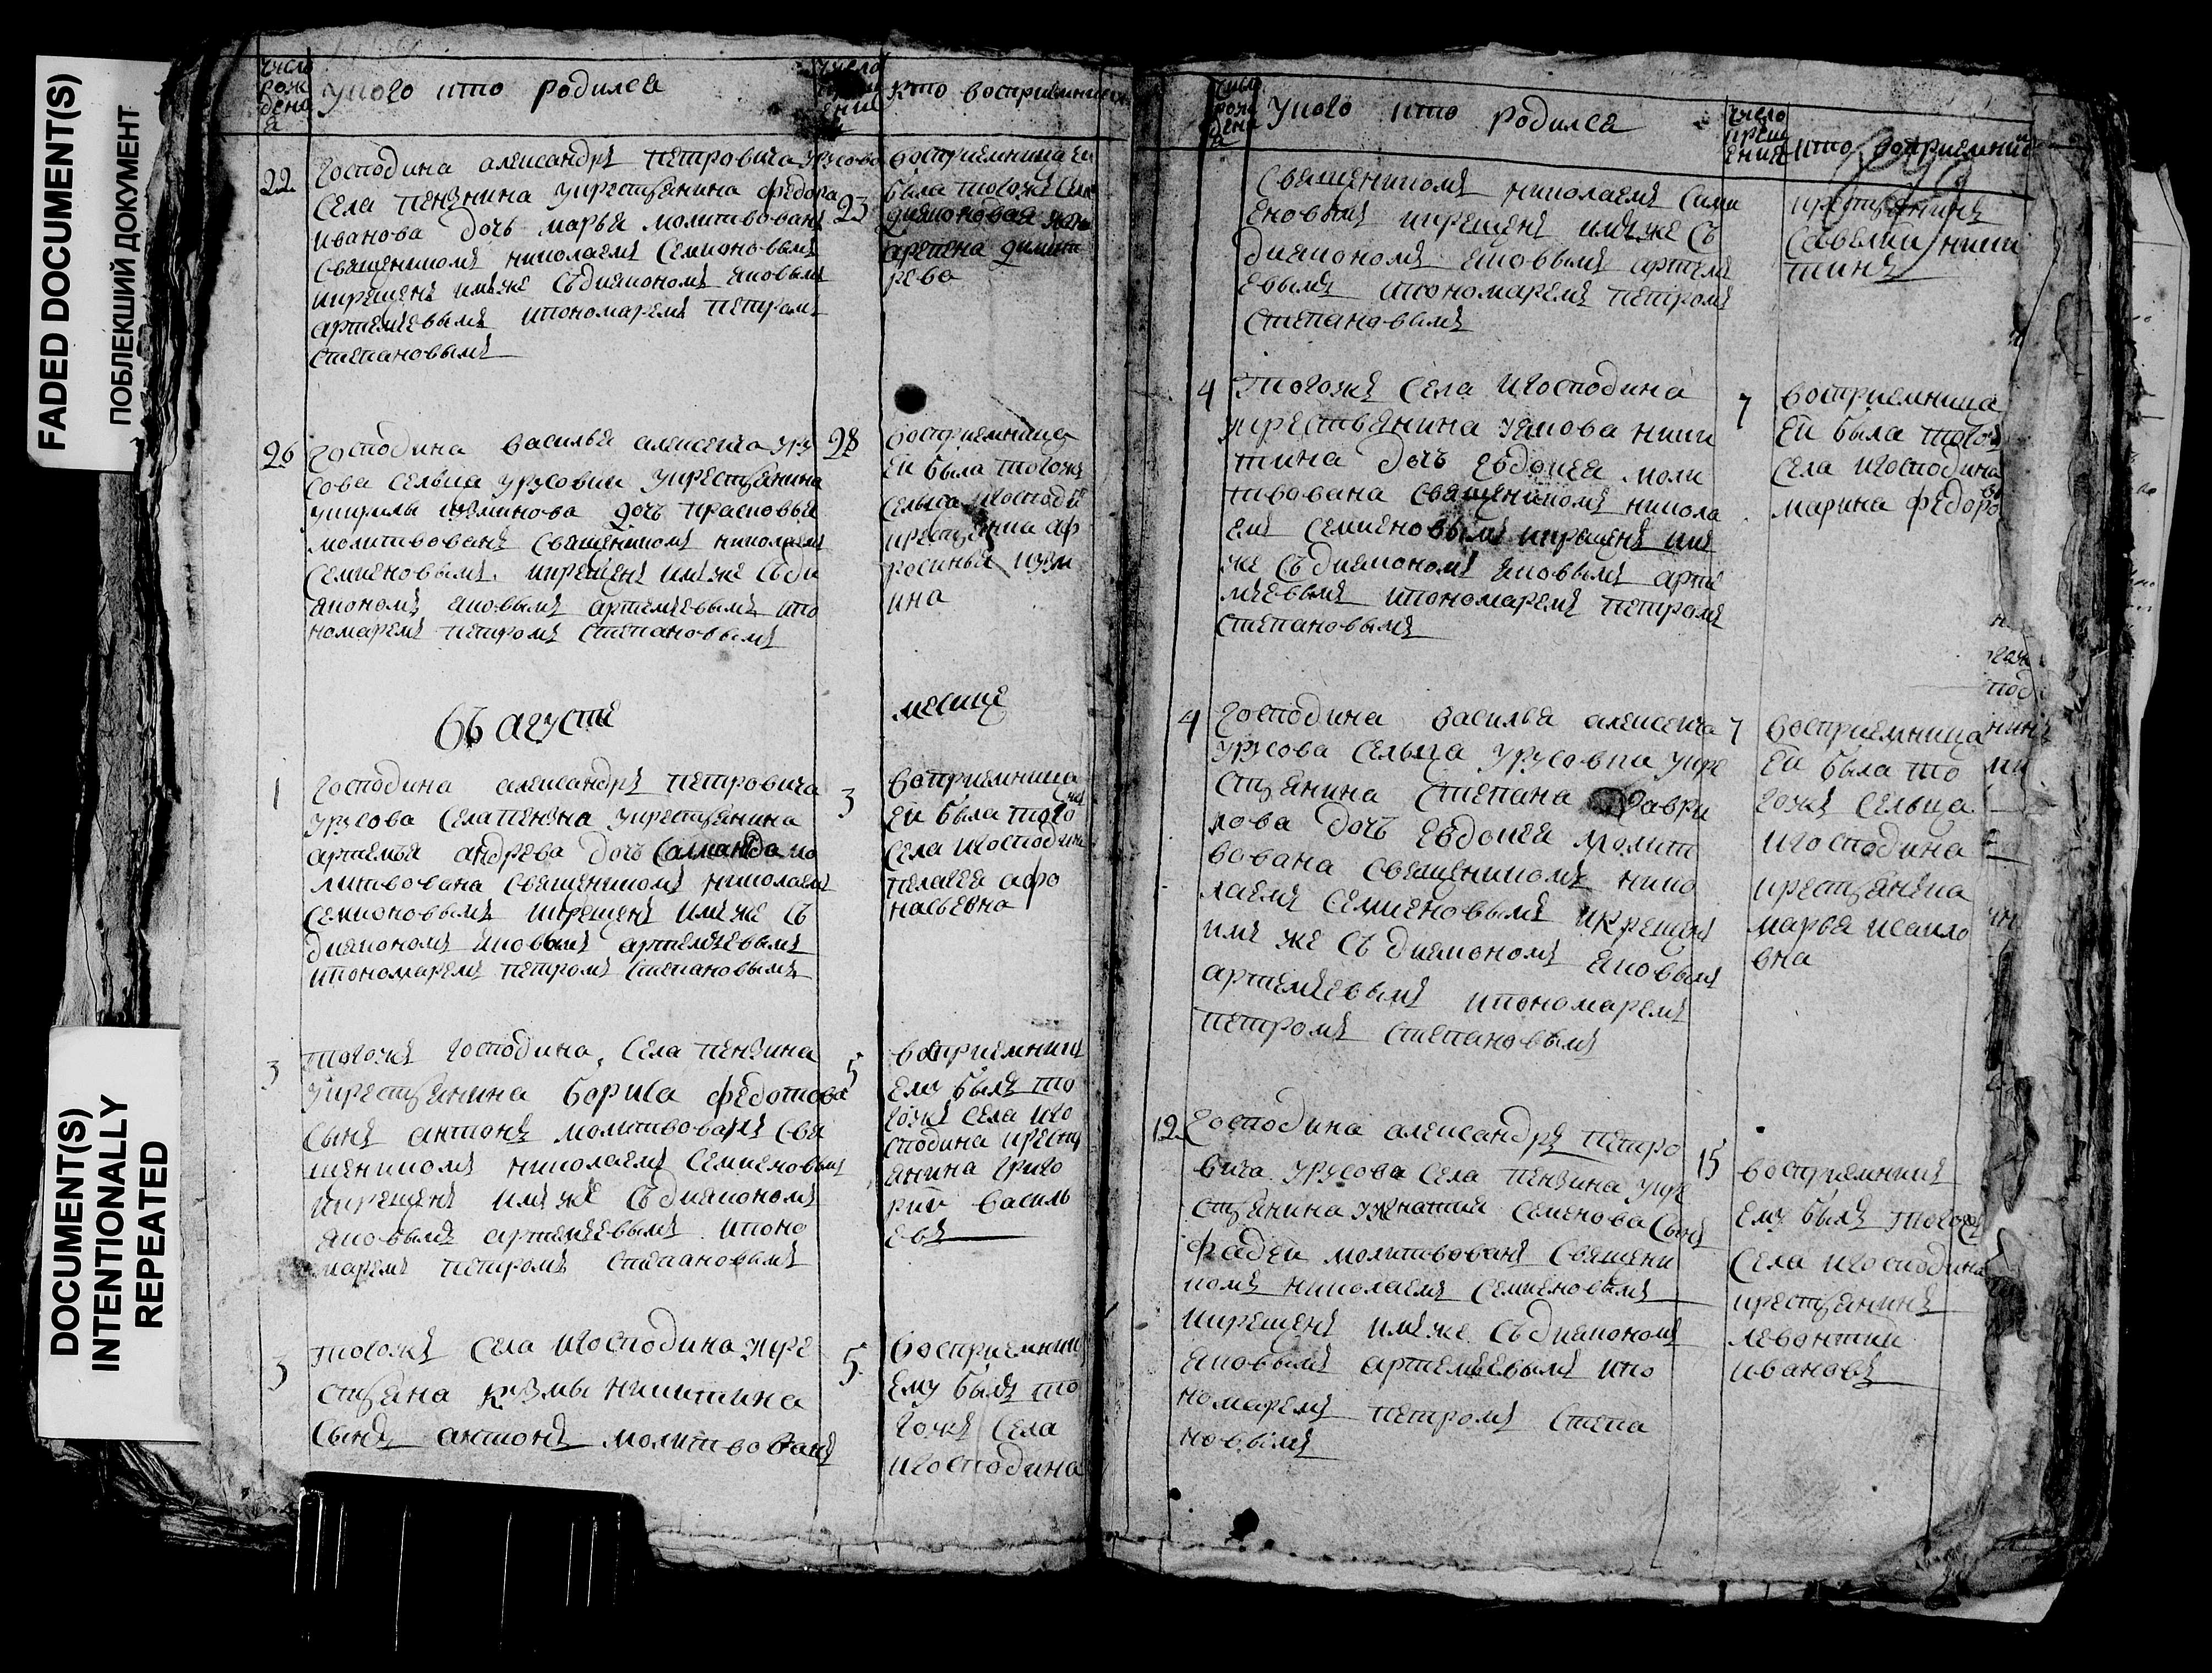 FADED DOCUMENT(S)
ПОБЛЕКШИЙ ДОКУМЕНТ
DOCUMENT(S)
INTENTIONALLY
REPEATED
число
рож
дена
я
укого кто родился
число
ения
Кто восприемники
22
господина александръ петровича урусова
села пензина укрестьянина федора
иванова дочь марья молитвованъ
священикомъ николаемъ семионовымъ
икрещенъ имъ же съ дияпономъ яковымъ
артемиевымъ ипономаремъ петромъ
степановымъ
23
восприемница еи
была тогожъ села
дияконовая жена
арепена димит
рева
26
господина василья алексеича уру
сова сельца урусовки укрестьянина
дочь прасковья
молитвованъ священикомъ николаемъ
семиеновымъ. икрещенъ имъ же съ ди
якономъ яковымъ артемиевымъ ипо
номаремъ петромъ степановымъ
28
восприемница
еи была тогожъ
сельца игосподи
крестьянка аф
росинья кузм
ина
въ августе
месице
1
господина александръ петровича
урусова села пензна укрестьянина
артемья андрева дочь мо
литвована священикомъ николаемъ
семионовымъ икрещенъ имъ же съ
диякономъ яковымъ артемиевымъ
ипономаремъ петромъ степановымъ
3
вотприемница
еи была того
села игосподина
пелагея афо
насьевна
3
тогожъ господина, села пензина
укрестьянина бориса федотова
сынъ антонъ молитвованъ свя
щеникомъ николаемъ семиеновым
икрещенъ имъ же съ дияконом
яковымъ артемиевымъ ипоно
маремъ петромъ степановымъ
5
восприемникъ
ему былъ то
гожъ села иго
сподина крестья
янина григо
рии василь
евъ
3
тогожъ села игосподина укре
стьяна кузмы никитина
сынъ антонъ молитвованъ
5
восприемникъ
ему былъ то
гожъ села
игосподина
число
рож
дени
я
укого кто родился
число
креш
ения
кто восприемник
священикомъ николаемъ семи
еновымъ икрещенъ имъ же съ
дияконом яковымъ артеми
евымъ ипономаремъ петромъ
степановымъ
крестьянинъ
савелии ники
тинъ
4
тогожъ села игосподина
укрестьянина укова ники
тина дочь евдокея моли
твована священикомъ никола
емъ семиеновымъ икрещенъ им
же съ дияконом яковымъ арте
миевымъ ипономаремъ петромъ
степановымъ
7
восприемница
еи была тогож
села игосподина
марина федоро
ва
4
господина василья алексеича
урусова сельца урусовка укре
стьянина степана гаври
лова дочь евдокея молит
вована священикомъ нико
лаемъ семиеновымъ икрещен
имъ же съ дияконом яковым
артемиевымъ ипономаремъ
петромъ степановымъ
7
восприемница
еи была то
гожъ сельца
игосподина
крестьянка
марья исаило
вна
12
господина александръ петро
вича урусова села пензина укре
стьянина игнатия семенова сынъ
фадеи молитвованъ священи
комъ николаемъ семиеновымъ
икрещенъ имъ же съ дияконом
яковымъ артемиевымъ ипо
номаремъ петромъ степа
новымъ
15
восприемникъ
ему былъ тогож
села игосподина
крестьянинъ
левонтии
ивановъ